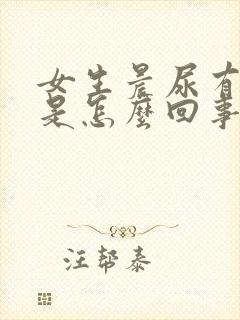 女生晨尿有
是怎麼回事
汪帮泰